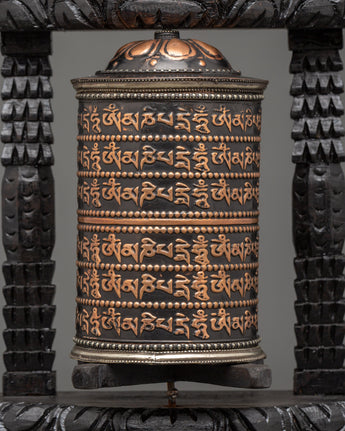 ཧཱུྃ་ཨོཾ་མ་ཎི་པདྨེ་ཧཱུྃ་ཨོཾ་མ
ཧཱུྃ་ཨོཾ་མ་ཎི་པདྨེ་ཧཱུྃ་ཨོཾ་མ
ཧཱུྃ་ཨོཾ་མ་ཎི་པདྨེ་ཧཱུྃ་ཨོཾ་མ
ཧཱུྃ་ཨོཾ་མ་ཎི་པདྨེ་ཧཱུྃ་ཨོཾ་མ
ཧཱུྃ་ཨོཾ་མ་ཎི་པདྨེ་ཧཱུྃ་ཨོཾ་མ
ཧཱུྃ་ཨོཾ་མ་ཎི་པདྨེ་ཧཱུྃ་ཨོཾ་མ